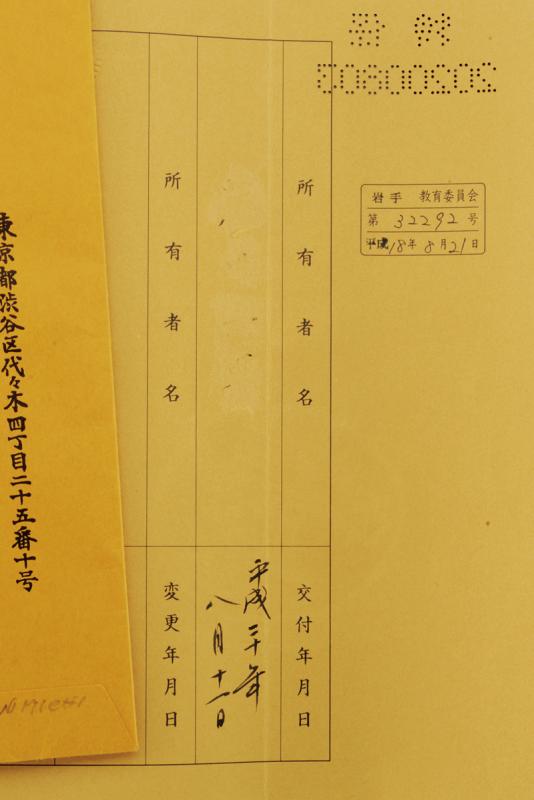 20200803
岩手 教育委員会
第 32292 号
平成 18年 8月21日
所有者名
交付年月日
平成三十年
八月十一日
所有者名
変更年月日
東京都渋谷区代々木四丁目二十五番十号